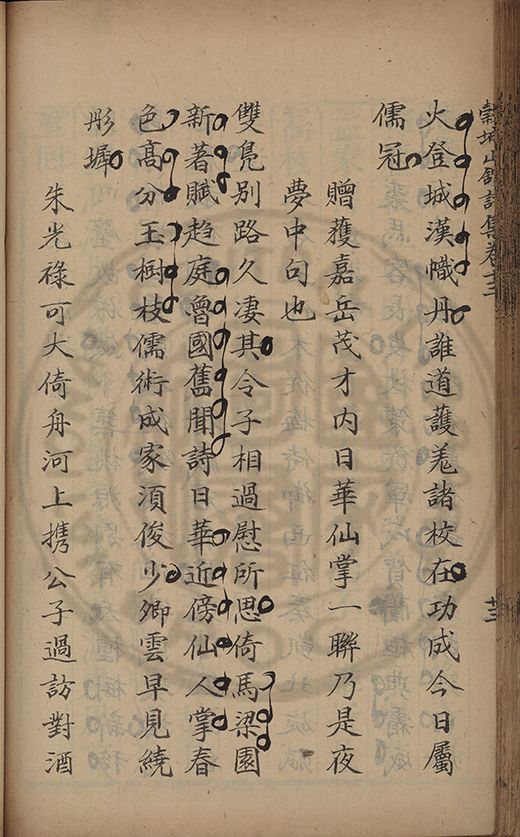 穀城山館詩集卷十二
廿三
火登城漢幟丹誰道護羌諸校在功成今日屬
儒冠
贈蒦嘉岳茂才内日華仙掌一聯乃是夜
夢中句也
雙鳬別路久凄其令子相過慰所思倚馬梁園
新著賦趍庭魯國舊聞詩日華近傍仙人掌春
色高分玉樹枝儒術成家湏俊少卿雲早見繞
彤墀
朱光祿可大倚舟河上携公子過訪對酒